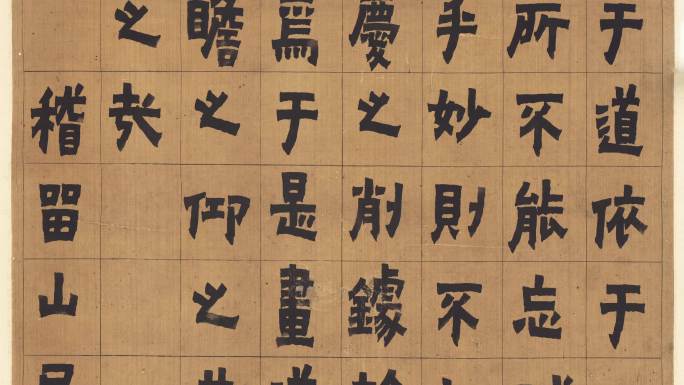 于道依于
所不能忘
手妙則不
慶之削鐻
焉于是畫
瞻之仰之
之哉
稽留山民